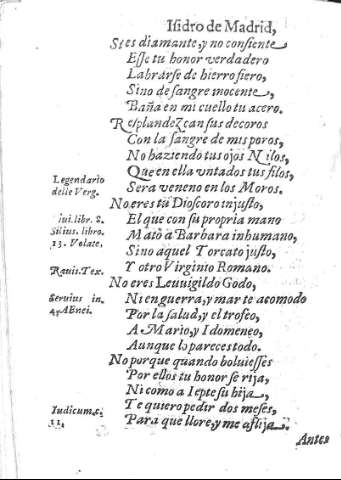 Isidro de Madrid,
Si es diamante, y no consiente
Esse tu honor verdadero
Labrarse de hierro fiero,
Sino de sangre inocente,
Baña en mi cuello tu acero.
Resplandezcan sus decoros
Con la sangre de mis poros,
No haziendo tus ojos Nilos,
Que en ella vntados tus filos,
Sera veneno en los Moros.
Legendario
delle Verg.
No eres tu Dioscoro injusto,
El que con su propria mano
Matò a Barbara inhumano,
Sino aquel Torcato justo,
Y otro Virginio Romano.
iui. libr. 8.
Silius. libro.
13. Volate.
Rauis. Tex.
No eres Leuuigildo Godo,
Ni en guerra, y mar te acomodo
Por la salud, y el trofeo,
A Mario, y Idomeneo,
Aunque lo pareces todo.
Seruius in.
4. AEnei.
No porque quando boluiesses
Por ellos tu honor se rija,
Ni como a Iepte su hija,
Te quiero pedir dos meses,
Para que llore, y me aflija.
Iudicum. c.
11.
Antes